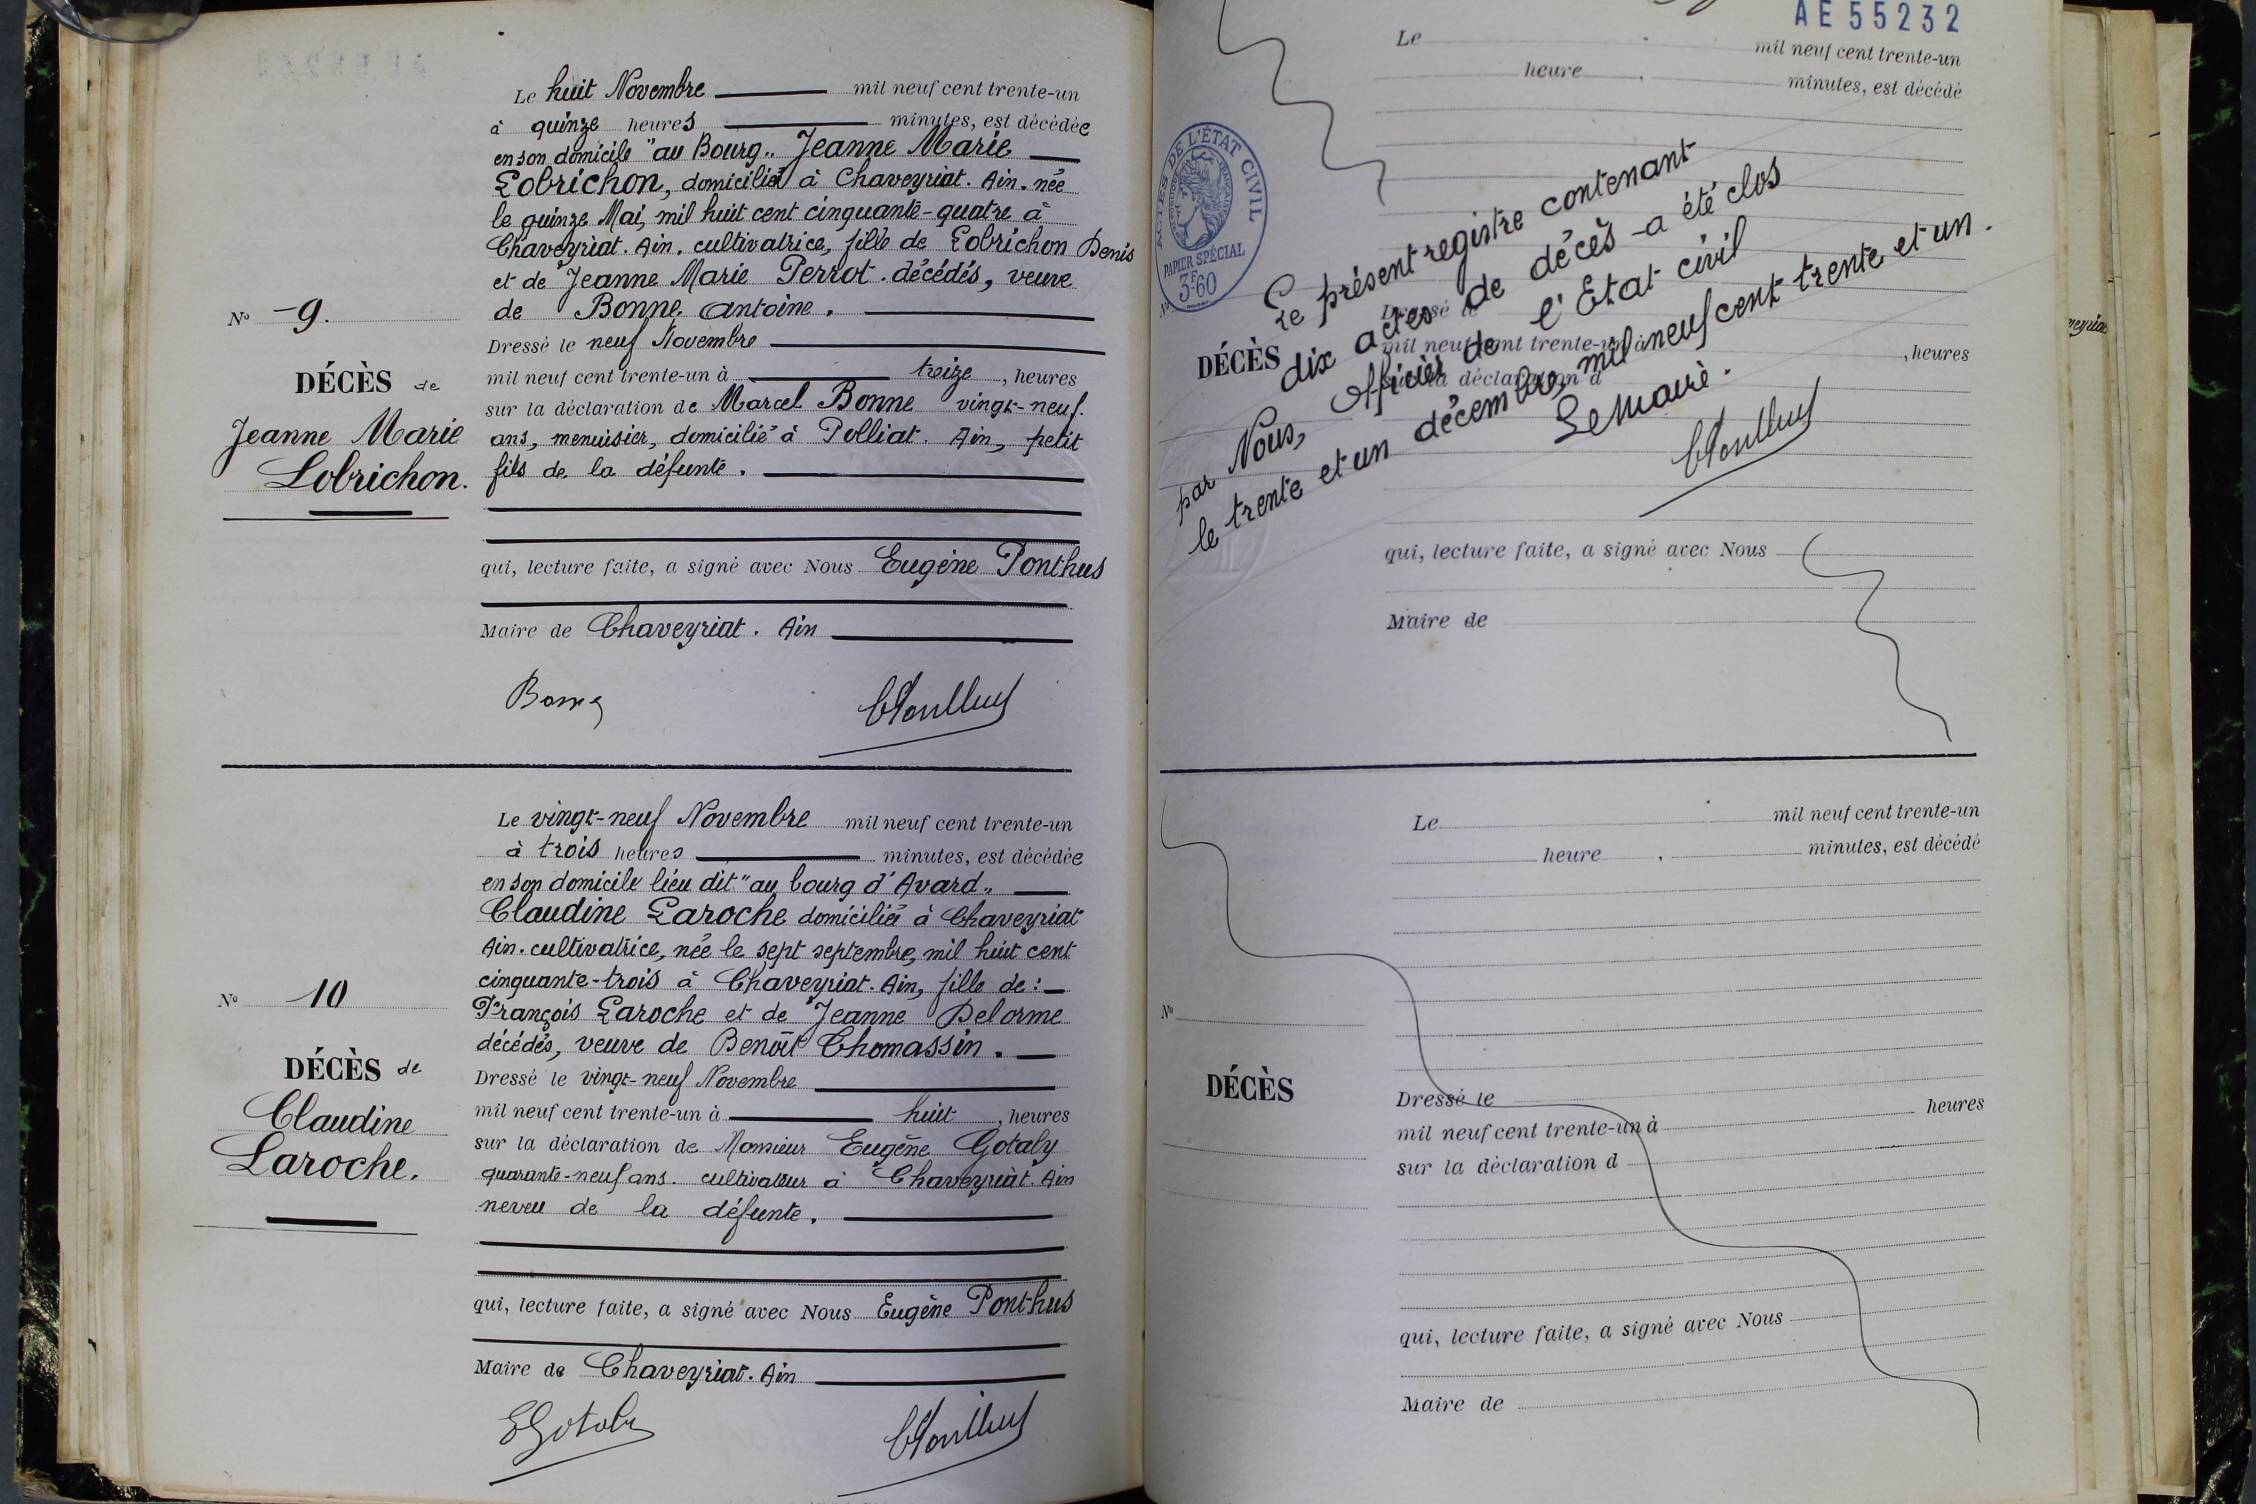 Le huit Novembre mil neuf cent trente-un
à quinze heures minutes, est décédée
en son domicile "au Bourg„ Jeanne Marie
Lobrichon, domiciliée à Chaveyriat. Ain. née
le quinze Mai, mil huit cent cinquante-quatre à
Chaveyriat. Ain. cultivatrice, fille de Lobrichon Denis
et de Jeanne Marie Perrot. décédés, veuve
de Bonne Antoine.
Dressé le neuf Novembre
mil neuf cent trente-un à treize, heures
sur la déclaration de Marcel Bonne vingt-neuf.
ans, menuisier, domicilié à Polliat. Ain, petit
fils de la défunte.
qui, lecture faite, a signé avec Nous Eugène Ponthus
Maire de Chaveyriat. Ain
Bonne
No 9.
DÉCÈS de
Jeanne Marie
Lobrichon.
Le vingt-neuf Novembre mil neuf cent trente-un
à trois heures minutes, est décédée
en son domicile lieu dit "au bourg d'Avard„
Claudine Laroche domiciliée à Chaveyriat
Ain. cultivatrice, née le sept septembre, mil huit cent
cinquante-trois à Chaveyriat. Ain, fille de :
François Laroche et de Jeanne Delorme
décédés, veuve de Benoît Thomassin.
Dressé le vingt-neuf Novembre
mil neuf cent trente-un à huit, heures
sur la déclaration de Monsieur Eugène Gotaly
quarante-neuf ans. cultivateur à Chaveyriat. Ain
neveu de la défunte.
qui, lecture faite, a signé avec Nous Eugène Ponthus
Maire de Chaveyriat. Ain
EGotaly
No 10
DÉCÈS de
Claudine
Laroche.
AE55232
Le mil neuf cent trente-un
heure minutes, est décédé
ACTES DE L'ÉTAT CIVIL
PAPIER SPÉCIAL
3F60
Le présent registre contenant
dix actes de décès a été clos
par Nous, officier de l'Etat civil
le trente et un décembre, mil neuf cent trente et un.
Le Maire.
DÉCÈS
Dressé le
mil neuf cent trente-un à , heures
sur la déclaration d
qui, lecture faite, a signé avec Nous
Maire de
Le mil neuf cent trente-un
heure minutes, est décédé
No
DÉCÈS
Dressé le
mil neuf cent trente-un à heures
sur la déclaration d
qui, lecture faite, a signé avec Nous
Maire de